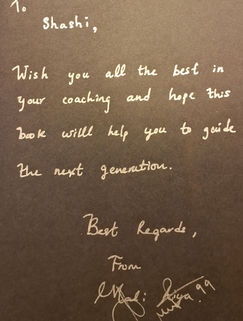 To
Shashi,
Wish you all the best in
your coaching and hope this
book willl help you to guide
the next generation.
Best Regards,
From